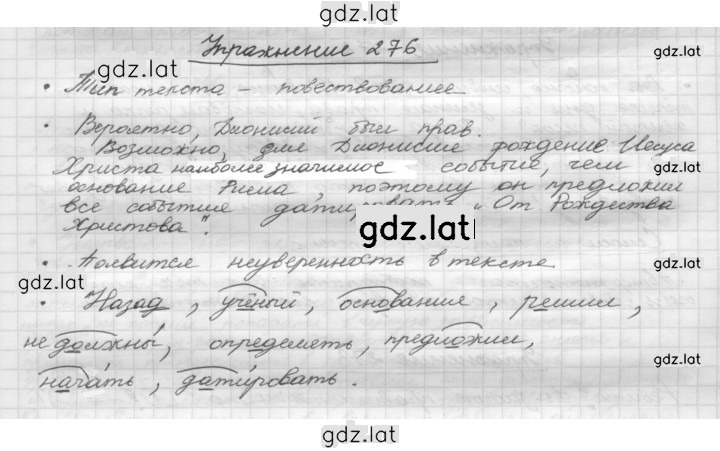 gdz.lat
Упражнение 276
gdz.lat
gdz.lat
• Тип текста – повествование
gdz.lat
• Вероятно, Дионисий был прав.
Возможно, для Дионисия рождение Иисуса
Христа наиболее значимое событие, чем
основание Рима, поэтому он предложил
все события датировать "От Рождества
Христова".
gdz.lat
• Появится неуверенность в тексте
gdz.lat
gdz.lat
• Назад, учёный, основание, решил,
не должны, определеть, предложил,
gdz.lat
начать, датировать.
gdz.lat
gdz.lat